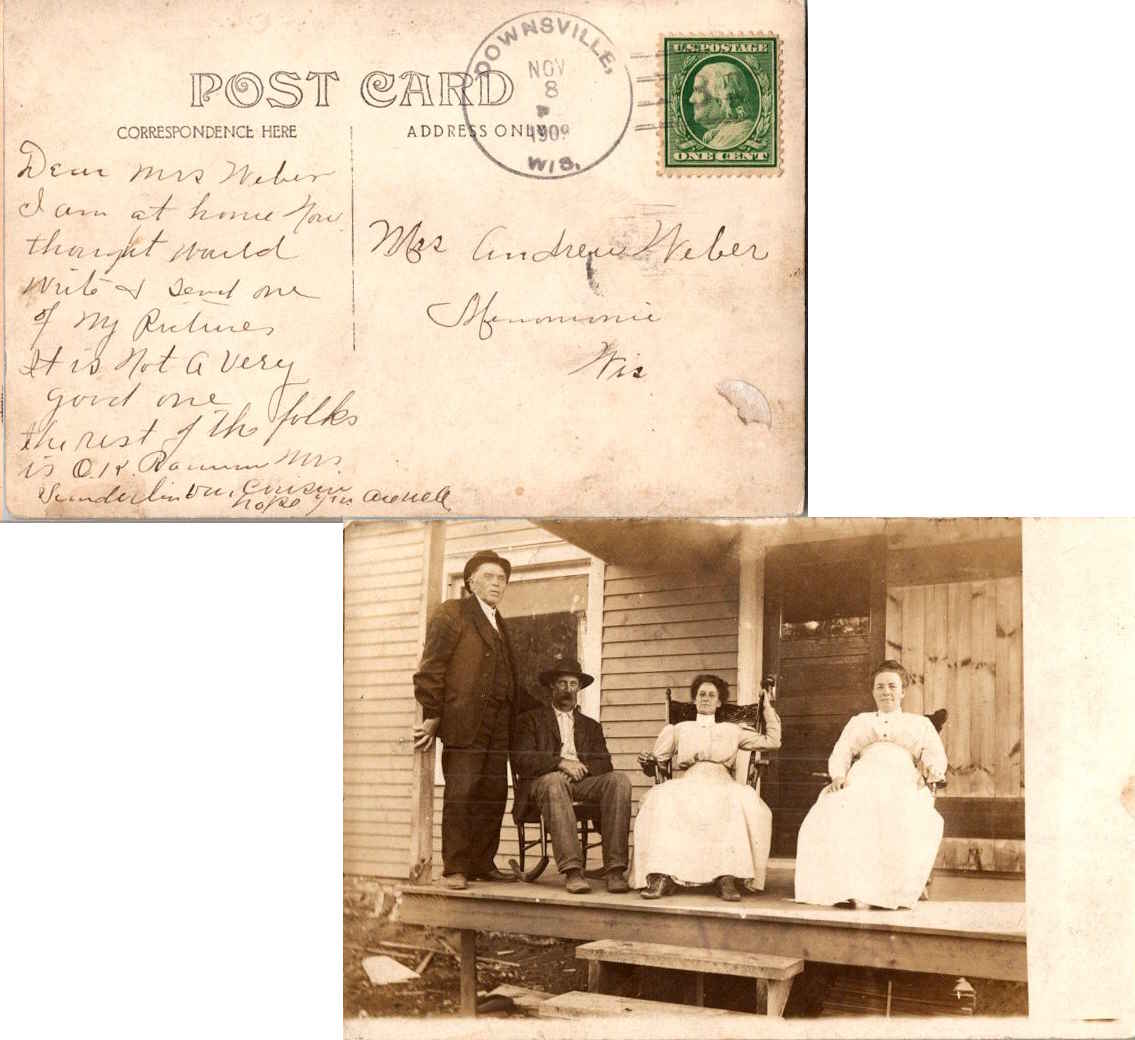 POST CARD
CORRESPONDENCE HERE
ADDRESS ONLY
DOWNSVILLE,
NOV
8
P
1909
WIS.
U.S. POSTAGE
ONE CENT
Dear Mrs Weber
I am at home now
thought would
write & send one
of my Pictures
It is Not a very
good one
the rest of the folks
is O.K.
Mrs.
cousin
hope you are well
Mrs Andrew Weber
Menomonie
Wis